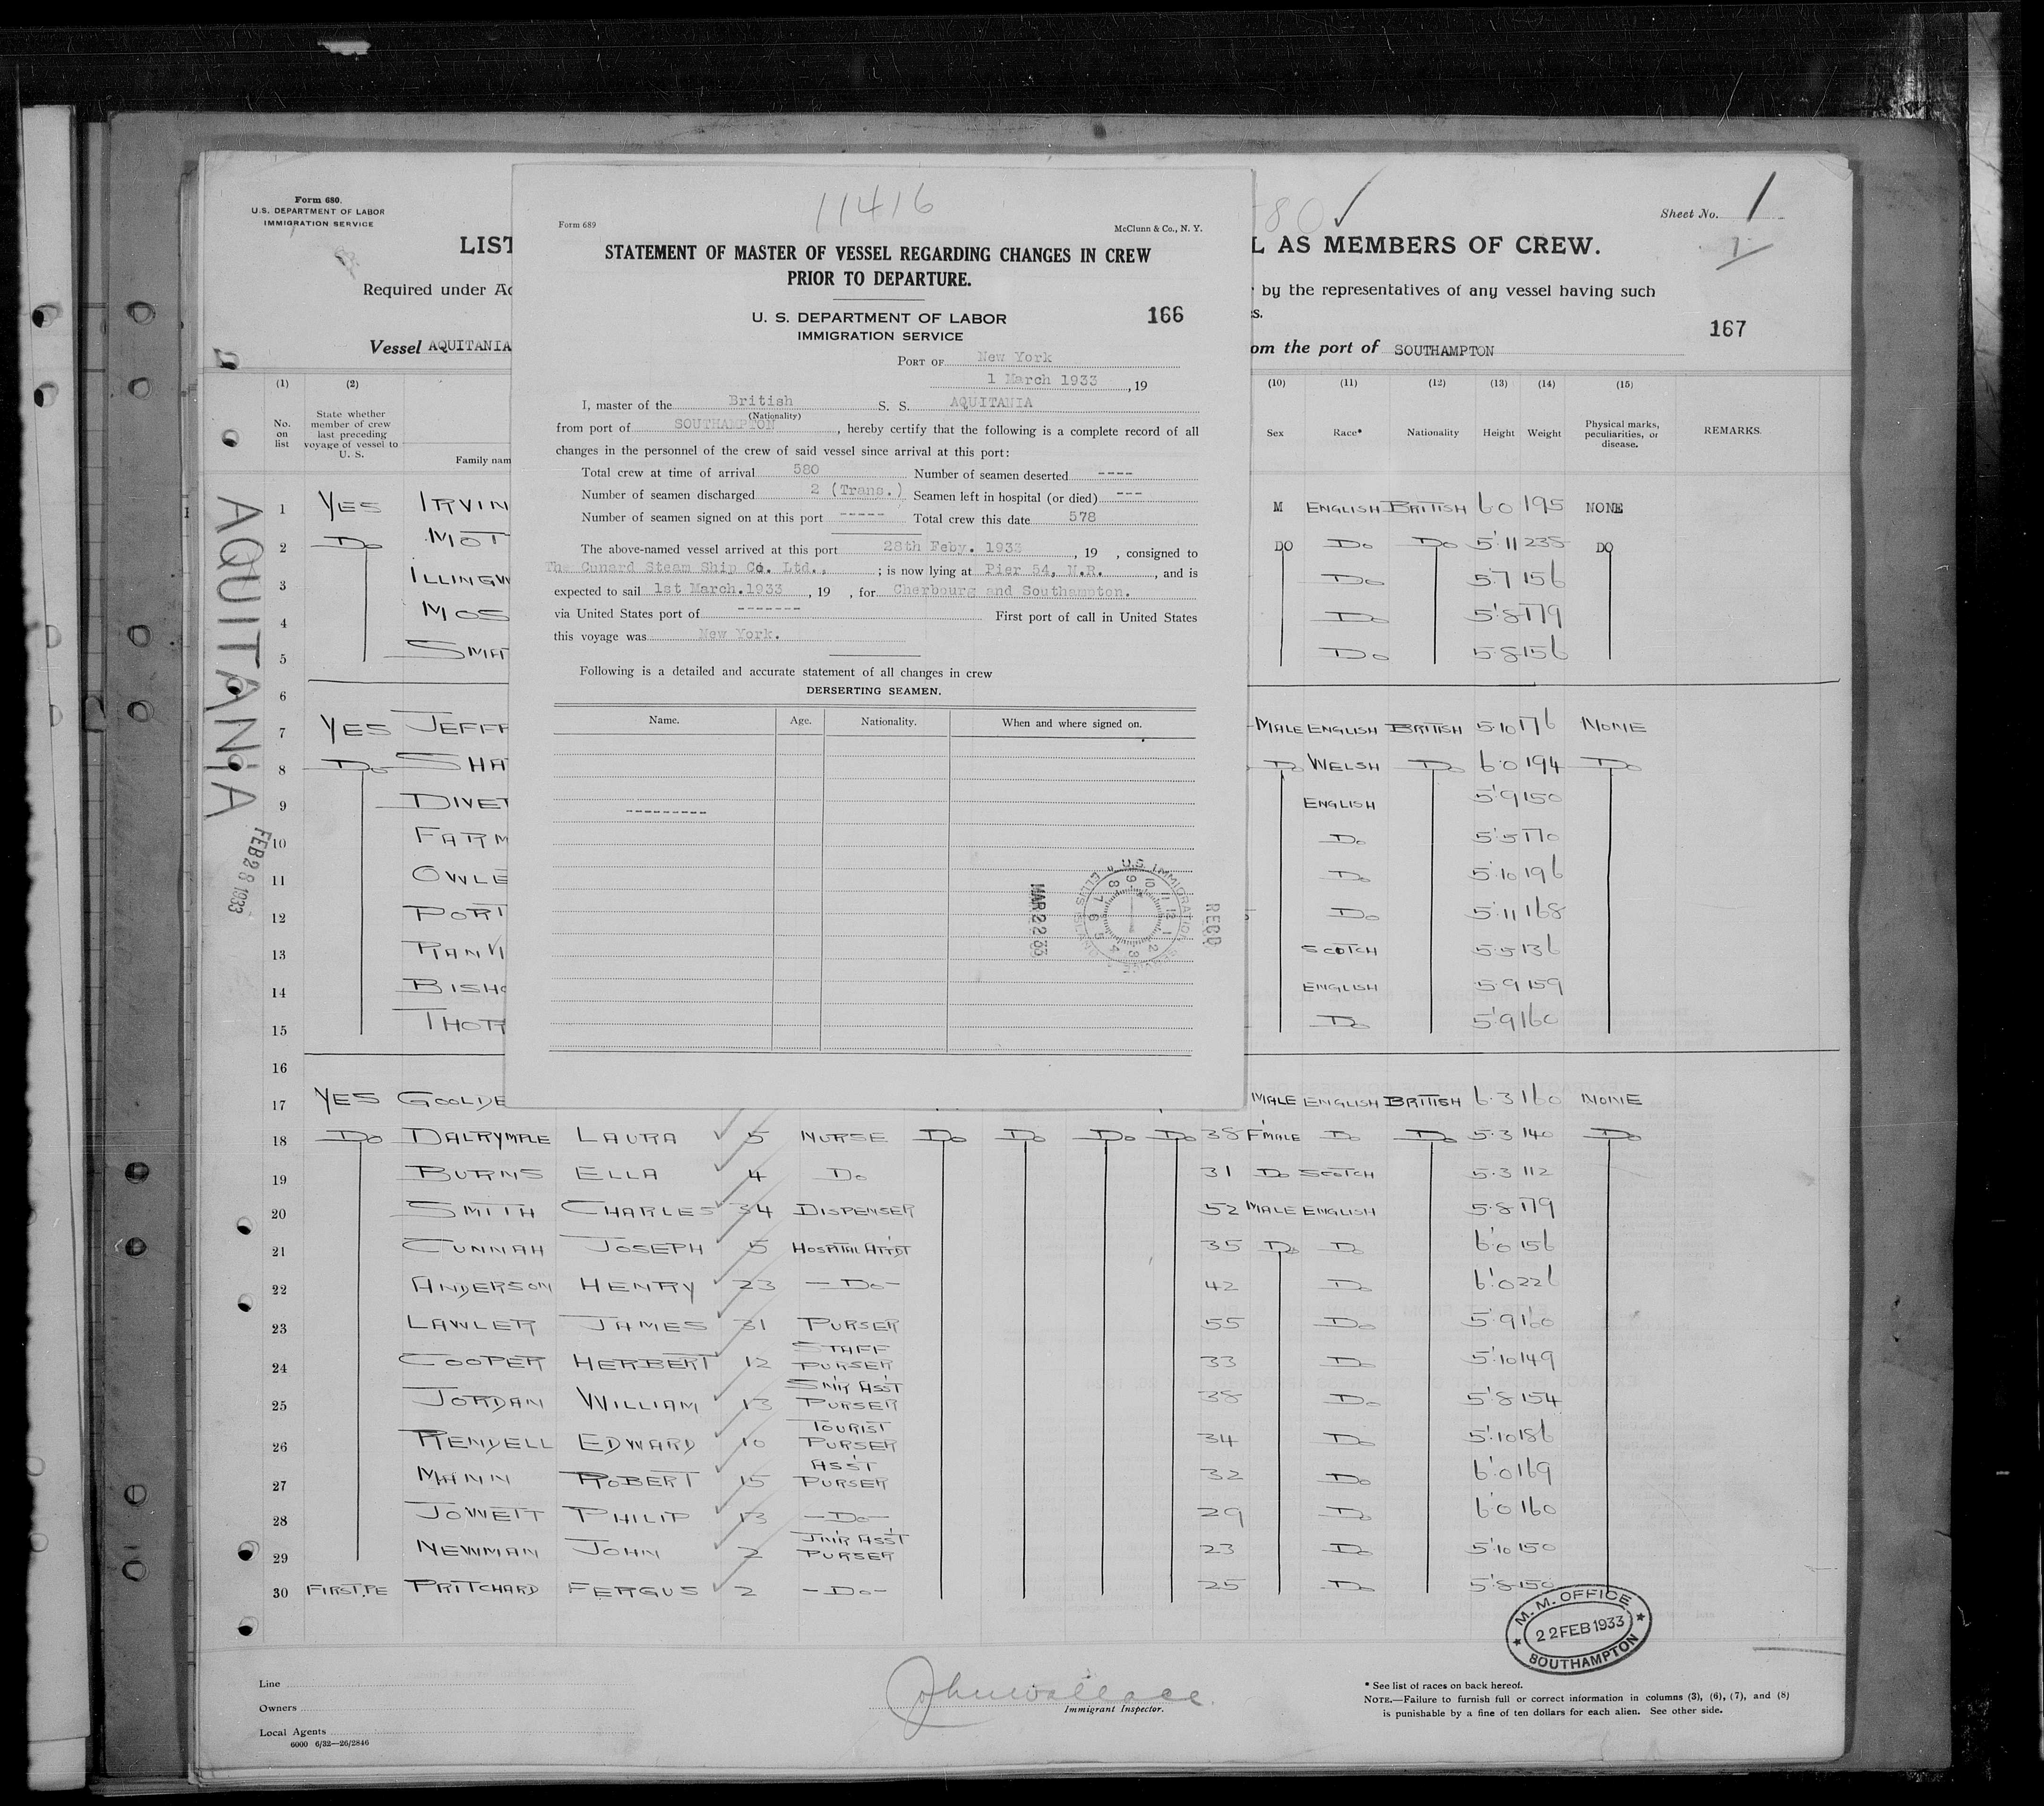 Form 680.
U.S. DEPARTMENT OF LABOR
IMMIGRATION SERVICE
LIST
Required under Ac
Vessel AQUITANIA
11416
Form 689
McClunn & Co., N. Y.
STATEMENT OF MASTER OF VESSEL REGARDING CHANGES IN CREW
PRIOR TO DEPARTURE.
U. S. DEPARTMENT OF LABOR
IMMIGRATION SERVICE
166
PORT OF New York
1 March 1933, 19
I, master of the British S. S. AQUITANIA
(Nationality)
from port of SOUTHAMPTON, hereby certify that the following is a complete record of all
changes in the personnel of the crew of said vessel since arrival at this port:
Total crew at time of arrival 580 Number of seamen deserted ----
Number of seamen discharged 2 (Trans.) Seamen left in hospital (or died) ---
Number of seamen signed on at this port ----- Total crew this date 578
The above-named vessel arrived at this port 28th Feby. 1933, 19 , consigned to
The Cunard Steam Ship Co. Ltd., ; is now lying at Pier 54, N.R., and is
expected to sail 1st March.1933, 19 , for Cherbourg and Southampton.
via United States port of ------- First port of call in United States
this voyage was New York.
Following is a detailed and accurate statement of all changes in crew
DERSERTING SEAMEN.
Name. Age. Nationality. When and where signed on.
---------
MAR 22 33
U.S. IMMIGRATION
RECD
80 ✓
Sheet No. 1
1
L AS MEMBERS OF CREW.
by the representatives of any vessel having such
s.
167
om the port of SOUTHAMPTON
(1) (2) (10) (11) (12) (13) (14) (15)
No. on list
State whether member of crew last preceding voyage of vessel to U. S.
Family nam
Sex Race* Nationality Height Weight Physical marks, peculiarities, or disease. REMARKS.
AQUITANIA
FEB 28 1933
1 YES IRVIN M ENGLISH BRITISH 6 0 195 NONE
2 Do MOT DO Do Do 5'11 238 DO
3 ILLINGW Do 5'7 156
4 MOS Do 5'8 179
5 SMIT Do 5'8 156
6
7 YES JEFF MALE ENGLISH BRITISH 5'10 176 NONE
8 Do SHA Do WELSH Do 6'0 194 Do
9 DIVE ENGLISH 5'9 150
10 FARM Do 5'5 170
11 OWLE Do 5'10 196
12 PORT Do 5'11 168
13 RANK SCOTCH 5'5 136
14 BISHO ENGLISH 5'9 159
15 THOR Do 5'9 160
16
17 YES GOOLDE MALE ENGLISH BRITISH 6'3 160 NONE
18 Do DALRYMPLE LAURA 5 NURSE Do Do Do Do 38 F'MALE Do Do 5'3 140 Do
19 BURNS ELLA 4 Do 31 Do SCOTCH 5'3 112
20 SMITH CHARLES 34 DISPENSER 52 MALE ENGLISH 5'8 179
21 CUNNAH JOSEPH 5 HOSPITAL ATT'DT 35 Do Do 6'0 156
22 ANDERSON HENRY 23 -Do- 42 Do 6'0 226
23 LAWLER JAMES 31 PURSER 55 Do 5'9 160
24 COOPER HERBERT 12 STAFF PURSER 33 Do 5'10 149
25 JORDAN WILLIAM 13 SN'R ASS'T PURSER 38 Do 5'8 154
26 RENDELL EDWARD 10 TOURIST PURSER 34 Do 5'10 186
27 MANN ROBERT 15 ASS'T PURSER 32 Do 6'0 169
28 JOWETT PHILIP 13 -Do- 29 Do 6'0 160
29 NEWMAN JOHN 2 JN'R ASS'T PURSER 23 Do 5'10 150
30 FIRST,PE PRITCHARD FERGUS 2 -Do- 25 Do 5'8 150
M. M. OFFICE
22 FEB 1933
SOUTHAMPTON
Line
Owners
Local Agents
6000 6/32—26/2846
John Wallace.
Immigrant Inspector.
* See list of races on back hereof.
NOTE.—Failure to furnish full or correct information in columns (3), (6), (7), and (8)
is punishable by a fine of ten dollars for each alien. See other side.